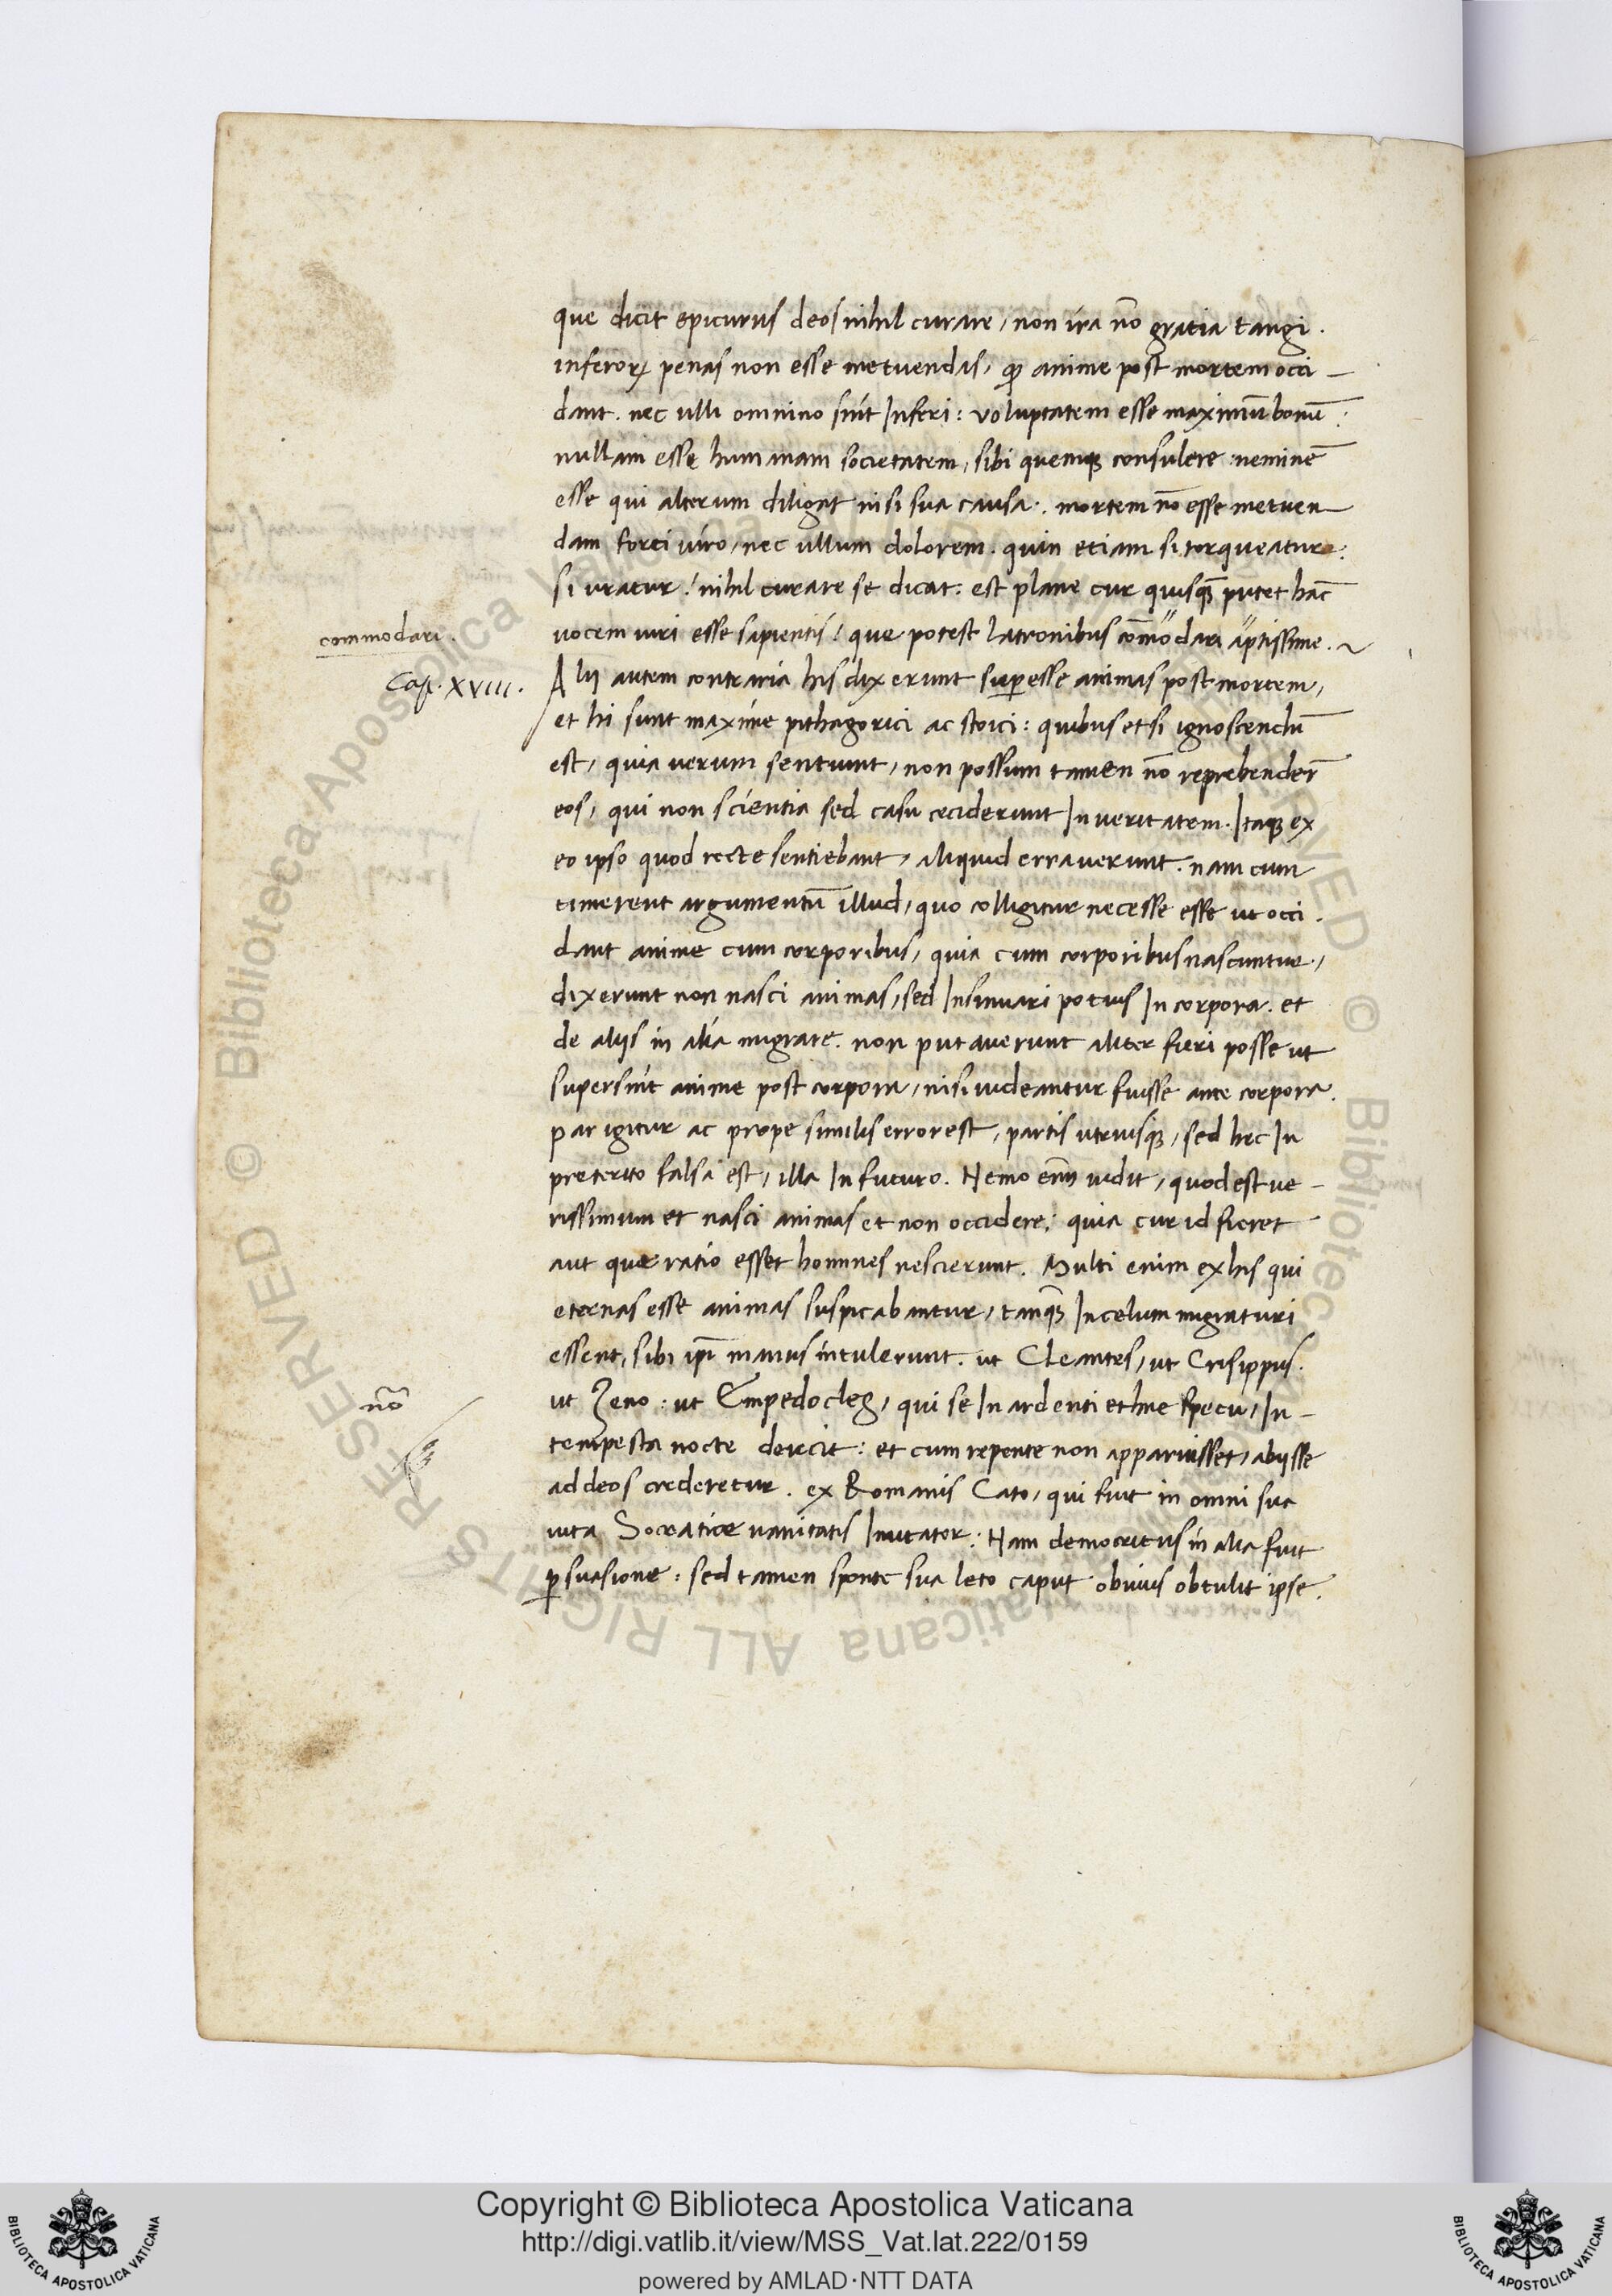 que dicit epicurus deos nihil curare, non ira nō gratia tangi.
inferorꝝ penas non esse metuendas, qꝫ anime post mortem occi-
dant. nec ulli omnino sint Inferi: voluptatem esse maximū bonū:
nullam esse humanam societatem, sibi quemqꝫ consulere: neminē
esse qui alterum diligat nisi sua causa. mortem nō esse metuen-
dam forti viro, nec ullum dolorem. quin etiam si torqueatur:
si uratur! nihil curare se dicat: est plane cur quisqꝫ putet hāc
commodari.
uocem uiri esse sapientis! que potest latronibus cōmodari aptissime.
Cap. XVIII.
Alij autem contraria his dixerunt suꝑesse animas post mortem,
et hi sunt maxime pithagorici ac stoici: quibus etsi ignoscendū
est, quia uerum sentiunt, non possum tamen nō reprehender̄
eos, qui non scientia sed casu ceciderunt In ueritatem. Itaqꝫ ex
eo ipso quod recte sentiebant, aliquid errauerunt. nam cum
timerent argumentū illud, quo colligitur necesse esse ut occi.
dant anime cum corporibus, quia cum corporibus nascuntur,
dixerunt non nasci animas, sed Insinuari potius In corpora. et
de alijs in alia migrare. non putauerunt aliter fieri posse ut
supersint anime post corpora, nisi uideantur fuisse ante corpora.
par igitur ac prope similis error est, partis utriusqꝫ, sed hec In
preterito falsa est, illa In futuro. Nemo enī uidit, quod est ue-
rissimum et nasci animas et non occidere: quia cur id fieret
aut que ratio esset homines nescierunt. Multi enim ex his qui
eternas esse animas suspicabantur, tanqꝫ In celum migraturi
essent, sibi ipī manus intulerunt. ut Cleantes, ut Crisippus.
nō
ut Zeno: ut Empedocles, qui se In ardenti ethne specu, In-
tempesta nocte deiecit: et cum repente non apparuisset, abijsse
ad deos crederetur. ex Romanis Cato, qui fuit in omni sua
uita Socratice uanitatis Imitator: Nam democritus in alia fuit
ꝑsuasione: sed tamen sponte sua leto caput obuius obtulit ipse.
Copyright © Biblioteca Apostolica Vaticana
http://digi.vatlib.it/view/MSS_Vat.lat.222/0159
powered by AMLAD·NTT DATA